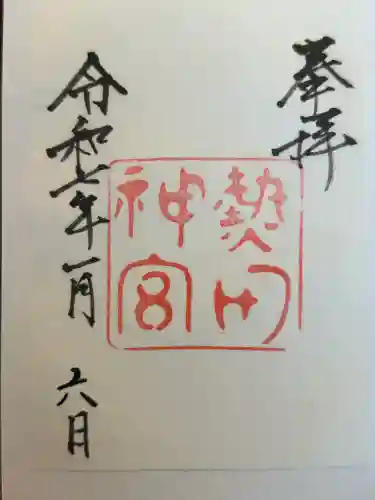 奉拝
熱田
神宮
令和七年一月六日